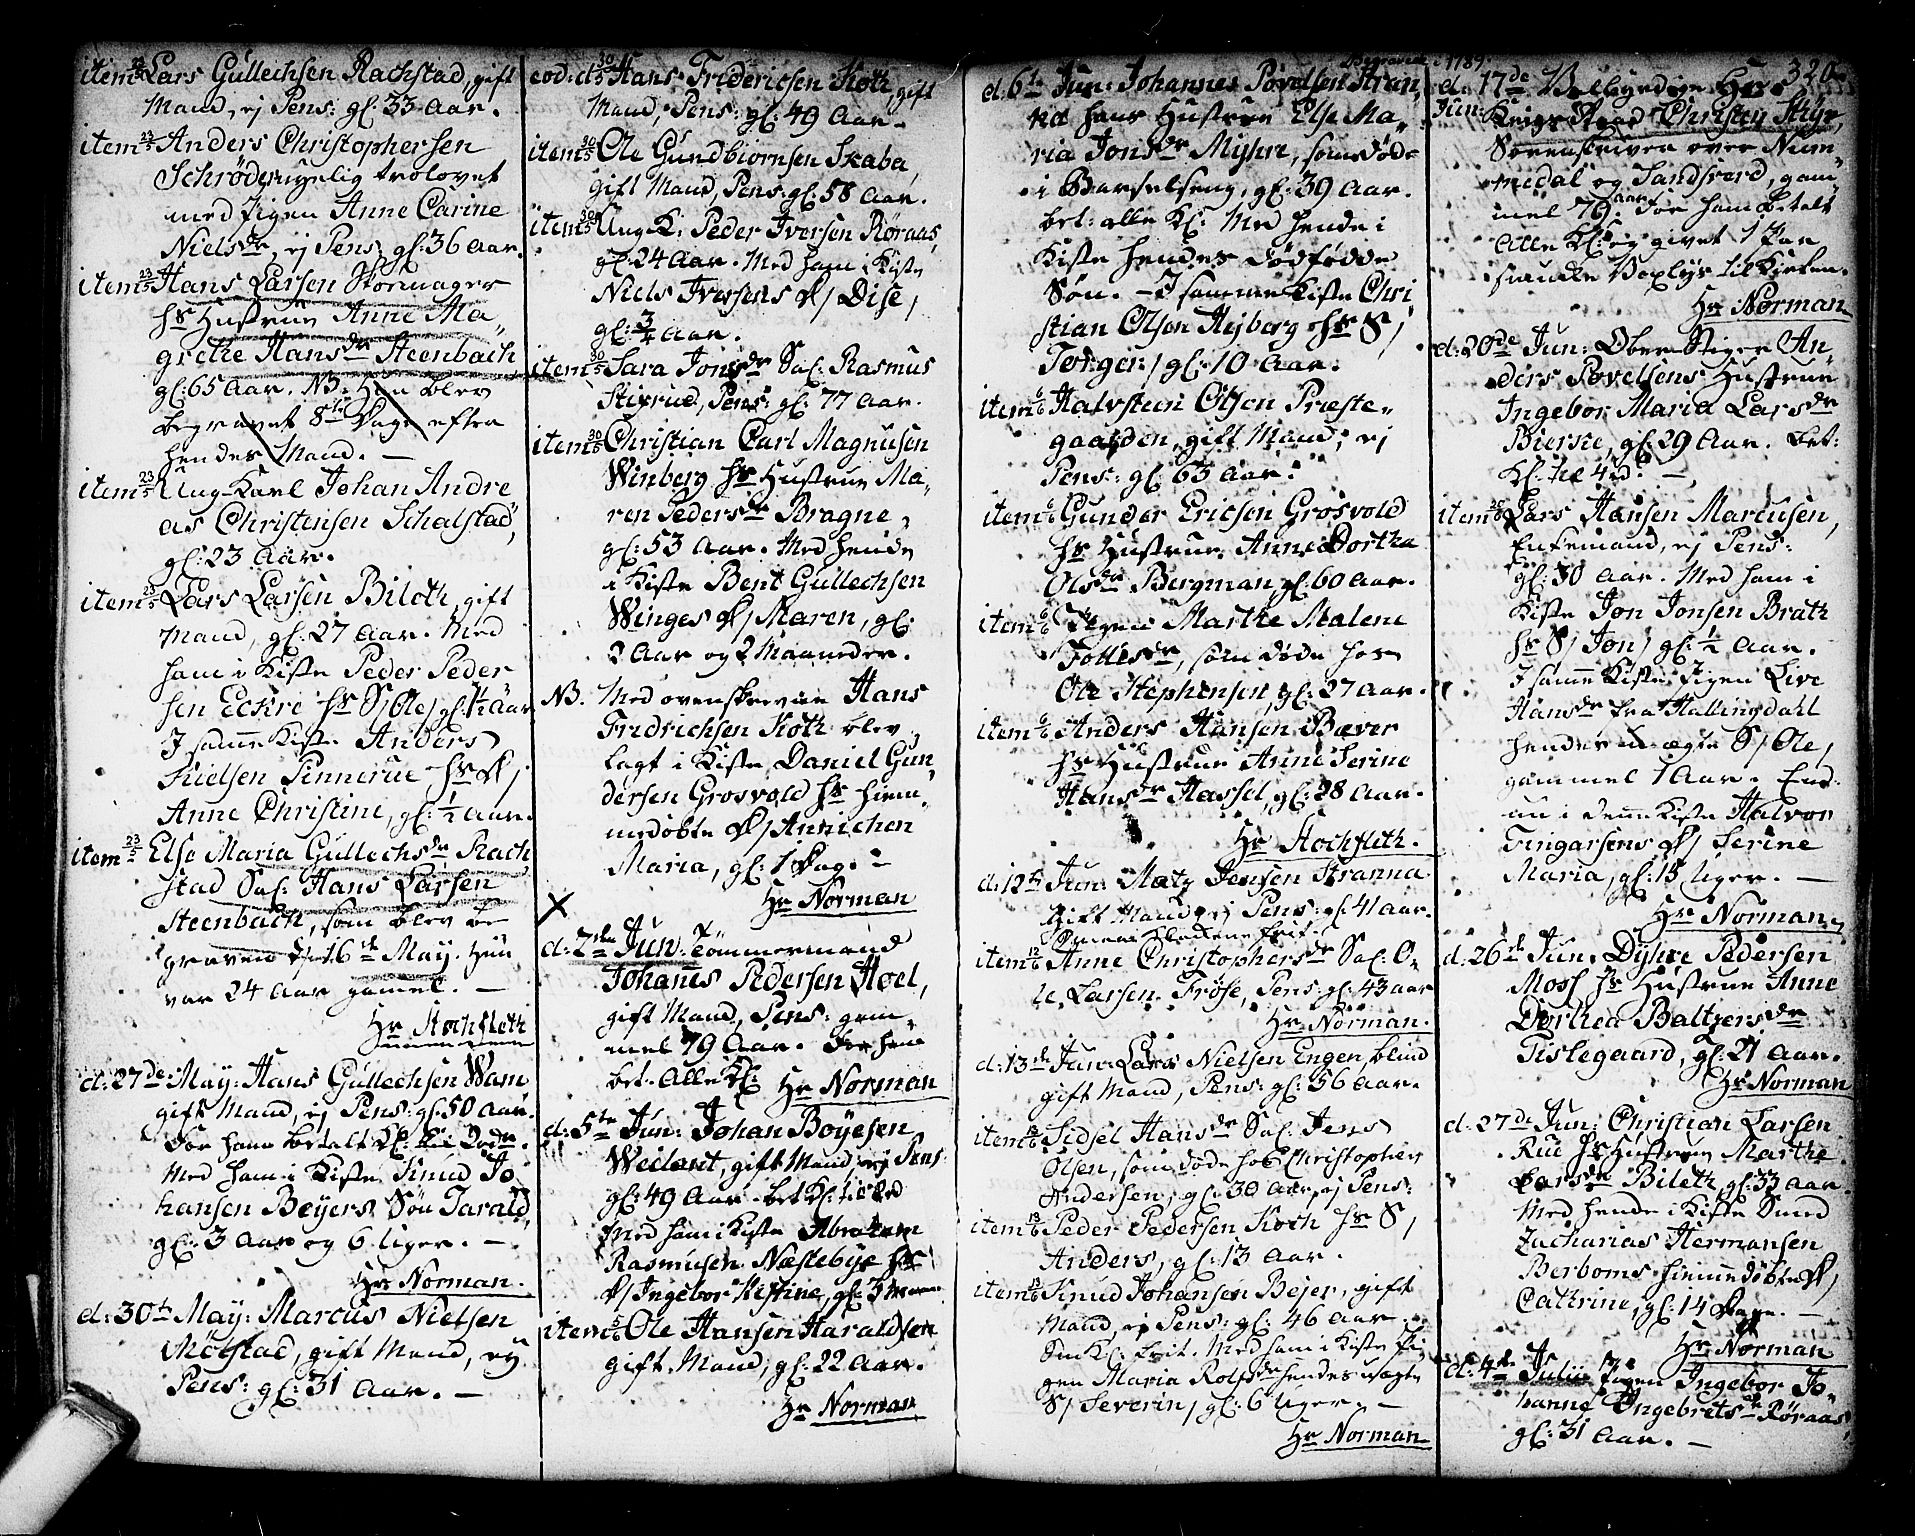 item 23/5 Lars Gullechsen Rachstad, gift
Mand, ej Pens: gl: 33 Aar.
item 23/5 Anders Christophersen
Schrøder, uyelig trolovet
med Pigen Anne Carine
Niels dr, ej Pens, gl: 36 Aar.
item 23/5 Hans Larsen Stormager
hs Hustrue Anne Ma„
grethe Hans dr Steenbach,
gl: 65 Aar. NB. Hun blev
begravet 8te Dage efter
hendes Mand. —
item 23/5 Ung Karl Johan Andre
as Christensen Schalstad,
gl: 23 Aar.
item 23/5 Lars Larsen Biloth, gift
Mand, gl: 27 Aar. Med
ham i Kiste Peder Peder
sen Eckre hs S/ Ole/ gl: 1½ Aar
I samme Kiste Anders
Nielsen Pinnerue hs D/
Anne Christine, gl: ½ Aar.
item 23/5 Else Maria Gullechs dr Rach„
stad Sal: Hans Larsen
Steenbach, som blev be
graven d: 16de May. Hun
var 24 Aar gamel. —
Hr Stochfleth
d: 27de May: Hans Gullechsen Wam
gift Mand, ej Pens: gl: 50 Aar.
For ham betalt Kl:
Med ham i Kiste Knud Jo
hansen Beyers Søn Tarald,
gl: 3 Aar og 6 Uger. —
Hr Norman.
d: 30te May: Marcus Nielsen
Mølstad, gift Mand, ej
Pens: gl: 31 Aar. —
eod: d: 30/5 Hans Friderichsen Koth, gift
Mand, Pens: gl: 49 Aar —
item 30/5 Ole Gundbiørnsen Skaba,
gift Mand, Pens: gl: 58 Aar.
item 30/5 Ung K: Peder Iversen Røraas,
gl: 24 Aar. Med ham i Kiste
Niels Iversens D/ Dise,
gl: ¾ Aar.
item 30/5 Sara Jons dr Sal: Rasmus
Stigrud, Pens: gl: 77 Aar.
item 30/5 Christian Carl Magnusen
Winberg hs Hustrue Ma„
ren Peders dr Bragne„
gl: 53 Aar. Med hende
i Kiste Bent Gullechsen
Winges D/ Maren, gl:
2 Aar og 2 Maaneder.
NB. Med ovenskrevne Hans
Fridrichsen Koth blev
lagt i Kiste Daniel Gun„
dersen Grosvold hs hiem„
medøbte D/ Annichen
Maria, gl: 1 Dag. —
Hr Norman
d: 2den Jun. Tømmermand
Johannes Pedersen Hoel,
gift Mand, Pens: gam„
mel 79 Aar. For ham
bet. Alle Kl: Hr Norman
d: 5te Jun: Johan Bøyesen
Weilant, gift Mand, ej Pens:
gl: 49 Aar. bet Kl:
Med ham i Kiste Abraham
Rasmusen Næstebye hs
D/ Ingebor Kistine, gl: 3
item 5/6 Ole Hansen Haraldsen
gift Mand, gl: 22 Aar.
Hr Norman
Begravne 1789.
d: 6te Jun: Johannes Povelsen Stran„
na hans Hustrue Else Ma„
ria Jons dr Myhre, som døde
i Barselseng, gl: 39 Aar.
bet: alle Kl: Med hende i
Kiste hendes dødfødde
Søn. — I samme Kiste Chri
stian Olsen Hejberg hs S/
Torger/ gl: 10 Aar.
item 6/6 Halvsteen Olsen Præste„
gaarden, gift Mand, ej
Pens: gl: 63 Aar.
item 6/6 Gunder Ericsen Grosvold
hs Hustrue Anne Dorthea
Ols dr Bergman, gl: 60 Aar.
item 6/6 Pigen Marthe Malene
Folles dr, som døde hos
Ole Stephensen, gl: 27 Aar.
item 6/6 Anders Hansen Bæver
hs Hustrue Anne Serine
Hans dr Hassel, gl: 28 Aar.
Hr Stochfleth.
d: 12te Jun: Matz Jensen Stranna
gift Mand, ej Pens: gl: 41 Aar.
item 12/6 Anne Christophers dr Sal: O„
le Larsen Frøse, Pens: gl: 43 Aar
Hr Norman.
d: 13de Jun: Lars Nielsen Engen, blind
gift Mand, Pens: gl: 56 Aar.
item 13/6 Sidsel Hans dr Sal: Jens
Olsen, som døde hos Christopher
Andersen, gl: 30 Aar, ej Pens:
item 13/6 Peder Pedersen Koch hs S/
Anders, gl: 13 Aar.
item 13/6 Knud Johansen Bejer, gift
Mand, ej Pens: gl: 46 Aar.
Sm Kl: frit. Med ham i Kiste Pi„
gen Maria Rolfs dr hendes uægte
S/ Severin/ gl: 6 Uger. —
Hr Norman
320
d: 17de Jun: Velbyrdige Hr
Krigs Raad Christen Styr,
Sorenskriver over Num„
medal og Sandsverd, gam„
mel 79 Aar. For ham betalt
Alle Kl: og givet 1 Par
smukke Voxlys til Kirken.
Hr Norman
d: 20de Jun: Ober Stiger An„
ders Povelsens Hustrue
Ingebor Maria Lars dr
Bierke, gl: 29 Aar. bet:
Kl: til 4 rd. —
item 20/6 Lars Hansen Marcusen,
Enkemand, ej Pens:
gl: 50 Aar. Med ham i
Kiste Jon Jonsen Brath
hs S/ Jon/ gl: ½ Aar.
I samme Kiste Pigen Live
Hans dr fra Hallingdahl
hendes uægte S/ Ole,
gammel 1 Aar. End„
nu i denne Kiste Halvor
Fingarsens D/ Serine
Maria, gl: 15 Uger. —
Hr Norman
d: 26de Jun: Dyhre Pedersen
Moss hs Hustrue Anne
Dorthea Baltzers dr
Tislegaard, gl: 21 Aar.
Hr Norman
d: 27de Jun: Christian Larsen
Rue hs Hustrue Marthe
Lars dr Bileth, gl: 33 Aar.
Med hende i Kiste Smed
Zacharias Hermansen
Berboms hiemmedøbte D/
Cathrine, gl: 14 Dage. —
Hr Norman
d: 4de Julii Pigen Ingebor Jo„
hanne Ingebrets dr Røraas
gl: 31 Aar. —